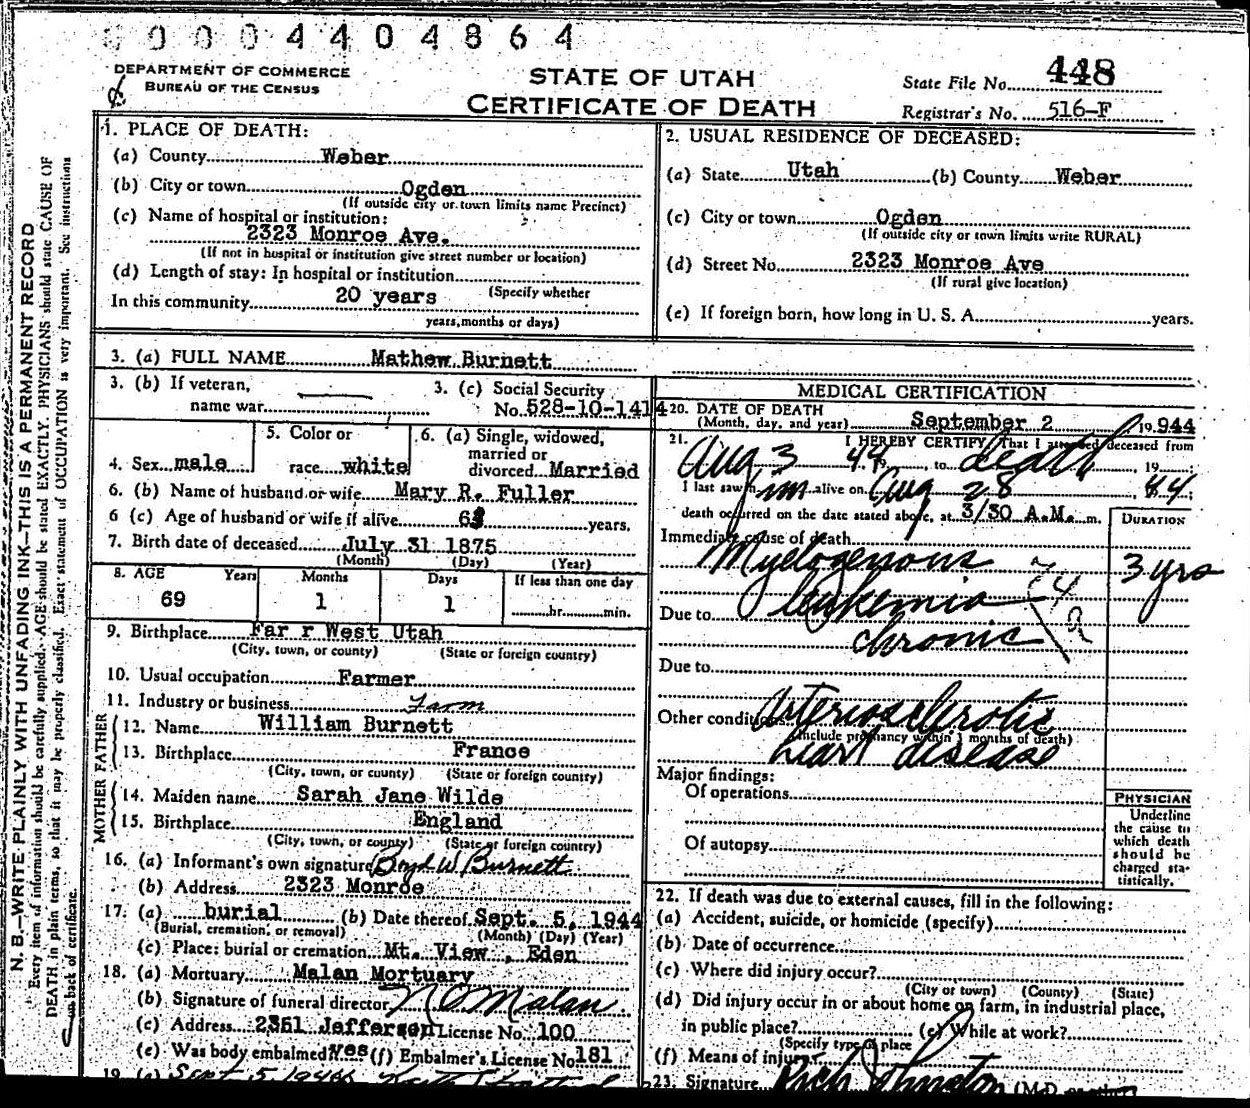 0 0 0 0 4 4 0 4 8 6 4
DEPARTMENT OF COMMERCE
BUREAU OF THE CENSUS
STATE OF UTAH
CERTIFICATE OF DEATH
State File No. 448
Registrar's No. 516-F
N. B.—WRITE PLAINLY WITH UNFADING INK—THIS IS A PERMANENT RECORD
Every item of information should be carefully supplied. AGE should be stated EXACTLY. PHYSICIANS should state CAUSE OF
DEATH in plain terms, so that it may be properly classified. Exact statement of OCCUPATION is very important. See instructions
on back of certificate.
1. PLACE OF DEATH:
(a) County Weber
(b) City or town Ogden
(If outside city or town limits name Precinct)
(c) Name of hospital or institution:
2323 Monroe Ave.
(If not in hospital or institution give street number or location)
(d) Length of stay: In hospital or institution
In this community 20 years (Specify whether
years, months or days)
2. USUAL RESIDENCE OF DECEASED:
(a) State Utah (b) County Weber
(c) City or town Ogden
(If outside city or town limits write RURAL)
(d) Street No. 2323 Monroe Ave
(If rural give location)
(e) If foreign born, how long in U. S. A. years.
3. (a) FULL NAME Mathew Burnett
3. (b) If veteran,
name war
3. (c) Social Security
No. 528-10-1414
4. Sex male
5. Color or
race white
6. (a) Single, widowed,
married or
divorced Married
6. (b) Name of husband or wife Mary R. Fuller
6 (c) Age of husband or wife if alive years.
7. Birth date of deceased July 31 1875
(Month) (Day) (Year)
8. AGE Years Months Days If less than one day
69 1 1 hr. min.
9. Birthplace Far r West Utah
(City, town, or county) (State or foreign country)
10. Usual occupation Farmer
11. Industry or business Farm
FATHER
12. Name William Burnett
13. Birthplace France
(City, town, or county) (State or foreign country)
MOTHER
14. Maiden name Sarah Jane Wilde
15. Birthplace England
(City, town, or county) (State or foreign country)
16. (a) Informant's own signature Boyd W Burnett
(b) Address 2323 Monroe
17. (a) burial (b) Date thereof Sept. 5, 1944
(Burial, cremation, or removal) (Month) (Day) (Year)
(c) Place: burial or cremation Mt. View, Eden
18. (a) Mortuary Malan Mortuary
(b) Signature of funeral director N O Malan
(c) Address 2351 Jefferson License No. 100
(e) Was body embalmed? Yes (f) Embalmer's License No. 181
19. (a) Sept 5, 1944
MEDICAL CERTIFICATION
20. DATE OF DEATH
(Month, day, and year) September 2 1944
21. I HEREBY CERTIFY, That I attended deceased from
Aug 3 44, to death, 19
I last saw him alive on Aug 28, 44
death occurred on the date stated above, at 3/30 A.M. m.
DURATION
Immediate cause of death
Myelogenous 3 yrs
leukemia 74a
Due to
chronic
Due to
Other conditions Arteriosclerotic
(Include pregnancy within 3 months of death)
heart disease
Major findings:
Of operations
Of autopsy
PHYSICIAN
Underline
the cause to
which death
should be
charged sta-
tistically.
22. If death was due to external causes, fill in the following:
(a) Accident, suicide, or homicide (specify)
(b) Date of occurrence
(c) Where did injury occur?
(City or town) (County) (State)
(d) Did injury occur in or about home on farm, in industrial place,
in public place? (e) While at work?
(Specify type of place
(f) Means of injury
23. Signature Rich Johnston (M.D.